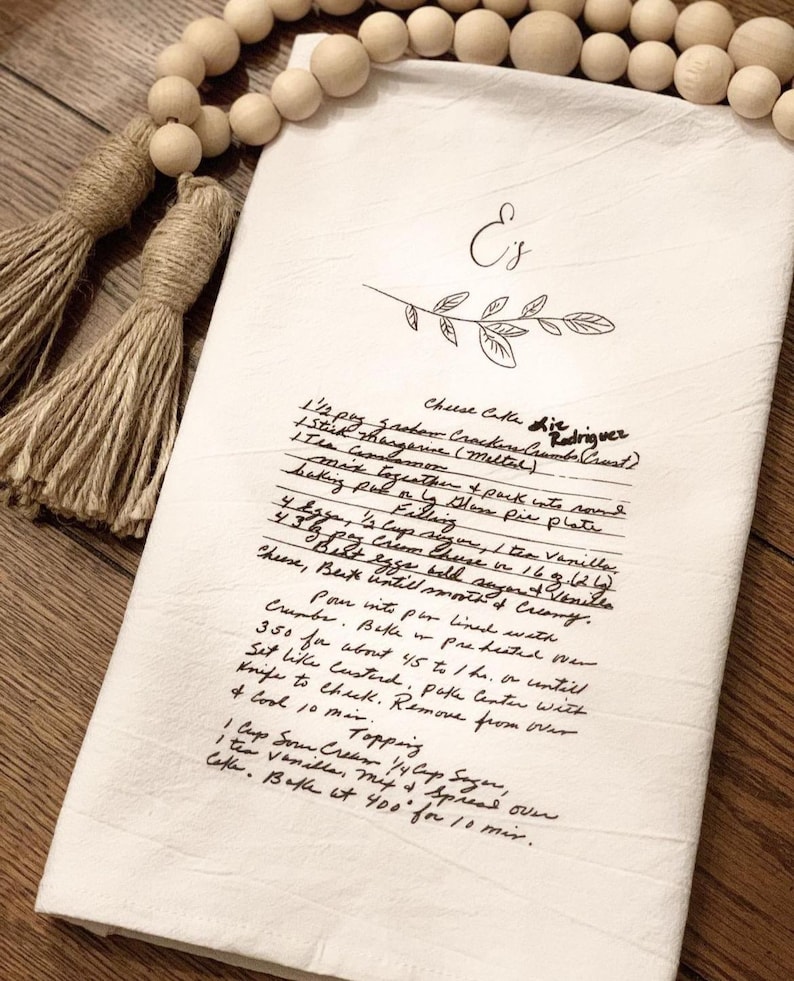 E's
Cheese Cake
Rodriguez
1 1/2 pag graham Crackers Crumbs (Crust)
1 Stick Margarine (Melted)
1 Tea Cinnamon
mix together & pack into round
baking pan or lg Glass pie plate
Filling
4 Eggs, 1/2 Cup sugar, 1 tea Vanilla
4 3 oz pag Cream Cheese or 16 oz. (2 lg)
Beat eggs add sugar & Vanilla
Cheese, Beat untill smooth & Creamy.
Pour into pan lined with
Crumbs. Bake in Preheated oven
350 for about 45 to 1 hr. or untill
Set like Custard, poke Center with
Knife to Check. Remove from oven
& Cool 10 min.
Topping
1 Cup Sour Cream 1/4 Cup Sugar,
1 tea Vanilla, mix & Spread over
Cake. Bake at 400° for 10 min.